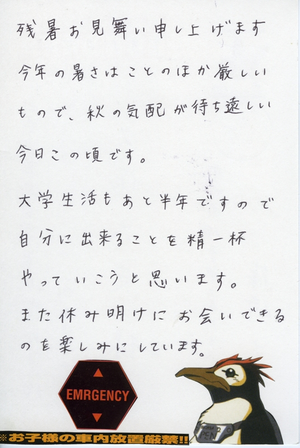 残暑お見舞い申し上げます
今年の暑さはことのほか厳しい
もので、秋の気配が待ち遠しい
今日この頃です。
大学生活もあと半年ですので
自分に出来ることを精一杯
やっていこうと思います。
また休み明けにお会いできる
のを楽しみにしています。
EMRGENCY
※お子様の車内放置厳禁!!